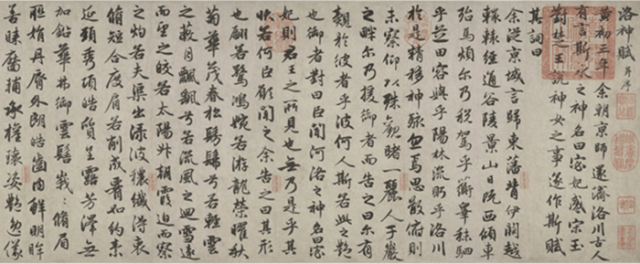 洛神賦 并序
黃初三年余朝京師還濟洛川古人
有言斯水之神名曰宓妃感宋玉
對楚王說神女之事遂作斯賦
其詞曰
余從京域言歸東藩背伊闕越
轘轅經通谷陵景山日既西傾車
殆馬煩尔乃稅駕乎蘅皋秣駟
乎芝田容與乎陽林流眄乎洛川
於是精移神駭忽焉思散俯則
未察仰以殊觀睹一麗人于巖
之畔尔乃援御者而告之曰尔有
覿於彼者乎彼何人斯若此之豔
也御者對曰臣聞河洛之神名曰宓
妃則君王之所見也無乃是乎其
狀若何臣願聞之余告之曰其形
也翩若驚鴻婉若游龍榮曜秋
菊華茂春松髣髴兮若輕雲
之蔽月飄颻兮若流風之迴雪遠
而望之皎若太陽升朝霞迫而察
之灼若夫渠出淥波穠纖得衷
脩短合度肩若削成腰如約素
延頸秀項皓質呈露芳澤無
加鉛華弗御雲髻峩峩脩眉
聯娟丹脣外朗皓齒內鮮明眸
善睞靨輔承權瓌姿豔逸儀